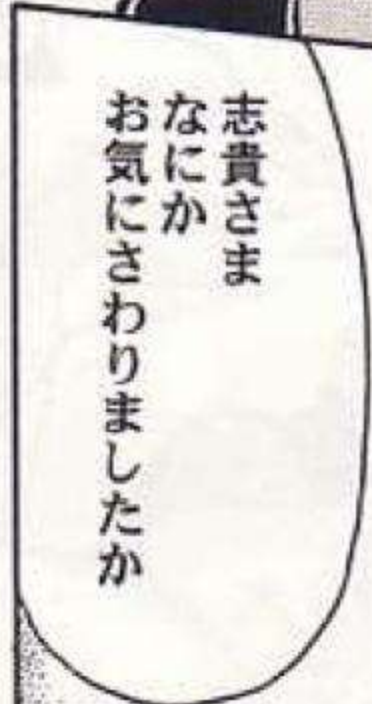 志貴さま
なにか
お気にさわりましたか